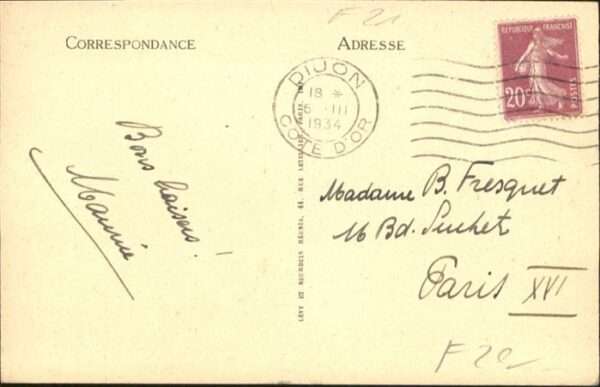 F 21
CORRESPONDANCE
ADRESSE
RÉPUBLIQUE FRANÇAISE
20c
POSTES
DIJON
18 *
6 III
1934
COTE D'OR
Bons baisers!
Maurice
LÉVY ET NEURDEIN RÉUNIS, 44, RUE LETELLIER, PARIS
Madame B. Fresquet
16 Bd. Suchet
Paris XVI
F 20